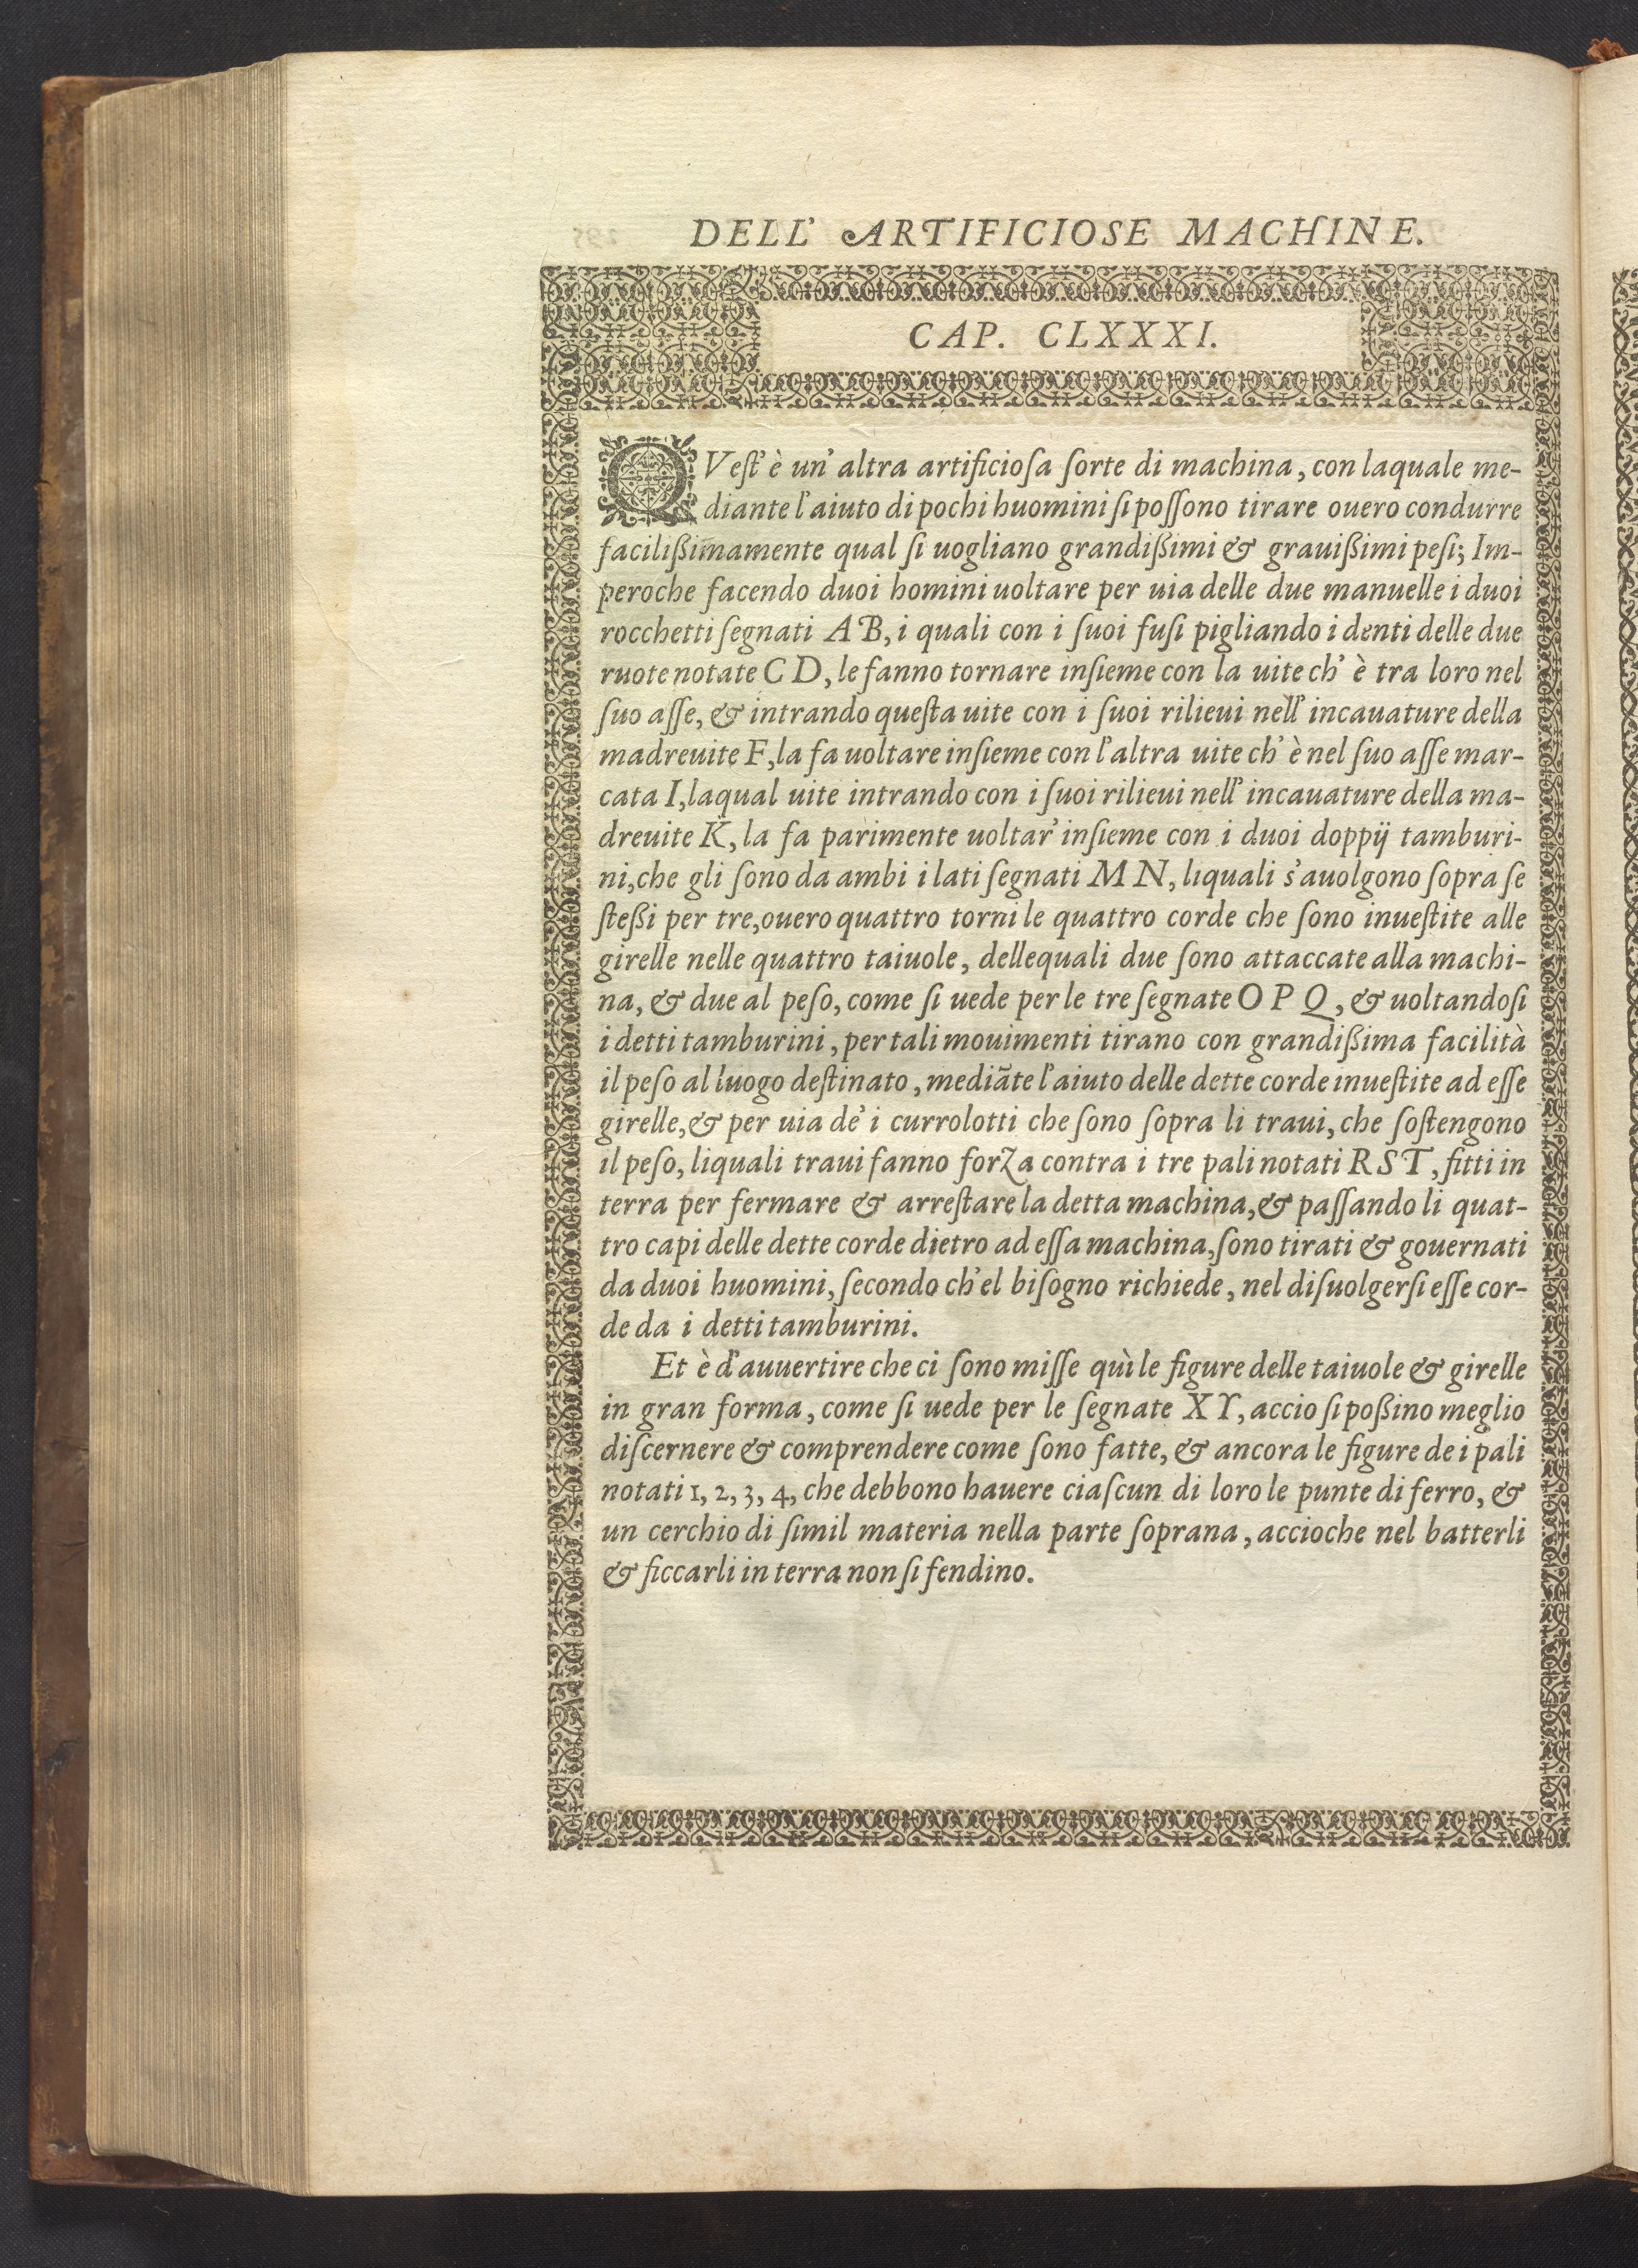 DELL' ARTIFICIOSE MACHINE.
CAP. CLXXXI.
QVest' è un' altra artificiosa sorte di machina, con laquale me-
diante l'aiuto di pochi huomini si possono tirare ouero condurre
facilißimamente qual si uogliano grandißimi & grauißimi pesi; Im-
peroche facendo duoi homini uoltare per uia delle due manuelle i duoi
rocchetti segnati A B, i quali con i suoi fusi pigliando i denti delle due
ruote notate C D, le fanno tornare insieme con la uite ch' è tra loro nel
suo asse, & intrando questa uite con i suoi rilieui nell' incauature della
madreuite F, la fa uoltare insieme con l'altra uite ch' è nel suo asse mar-
cata I, laqual uite intrando con i suoi rilieui nell' incauature della ma-
dreuite K, la fa parimente uoltar' insieme con i duoi doppij tamburi-
ni, che gli sono da ambi i lati segnati M N, liquali s'auolgono sopra se
steßi per tre, ouero quattro torni le quattro corde che sono inuestite alle
girelle nelle quattro taiuole, dellequali due sono attaccate alla machi-
na, & due al peso, come si uede per le tre segnate O P Q, & uoltandosi
i detti tamburini, per tali mouimenti tirano con grandißima facilità
il peso al luogo destinato, mediãte l'aiuto delle dette corde inuestite ad esse
girelle, & per uia de' i currolotti che sono sopra li traui, che sostengono
il peso, liquali traui fanno forza contra i tre pali notati R S T, fitti in
terra per fermare & arrestare la detta machina, & passando li quat-
tro capi delle dette corde dietro ad essa machina, sono tirati & gouernati
da duoi huomini, secondo ch'el bisogno richiede, nel disuolgersi esse cor-
de da i detti tamburini.
Et è d'auuertire che ci sono misse quì le figure delle taiuole & girelle
in gran forma, come si uede per le segnate X Y, accio si poßino meglio
discernere & comprendere come sono fatte, & ancora le figure de i pali
notati 1, 2, 3, 4, che debbono hauere ciascun di loro le punte di ferro, &
un cerchio di simil materia nella parte soprana, accioche nel batterli
& ficcarli in terra non si fendino.